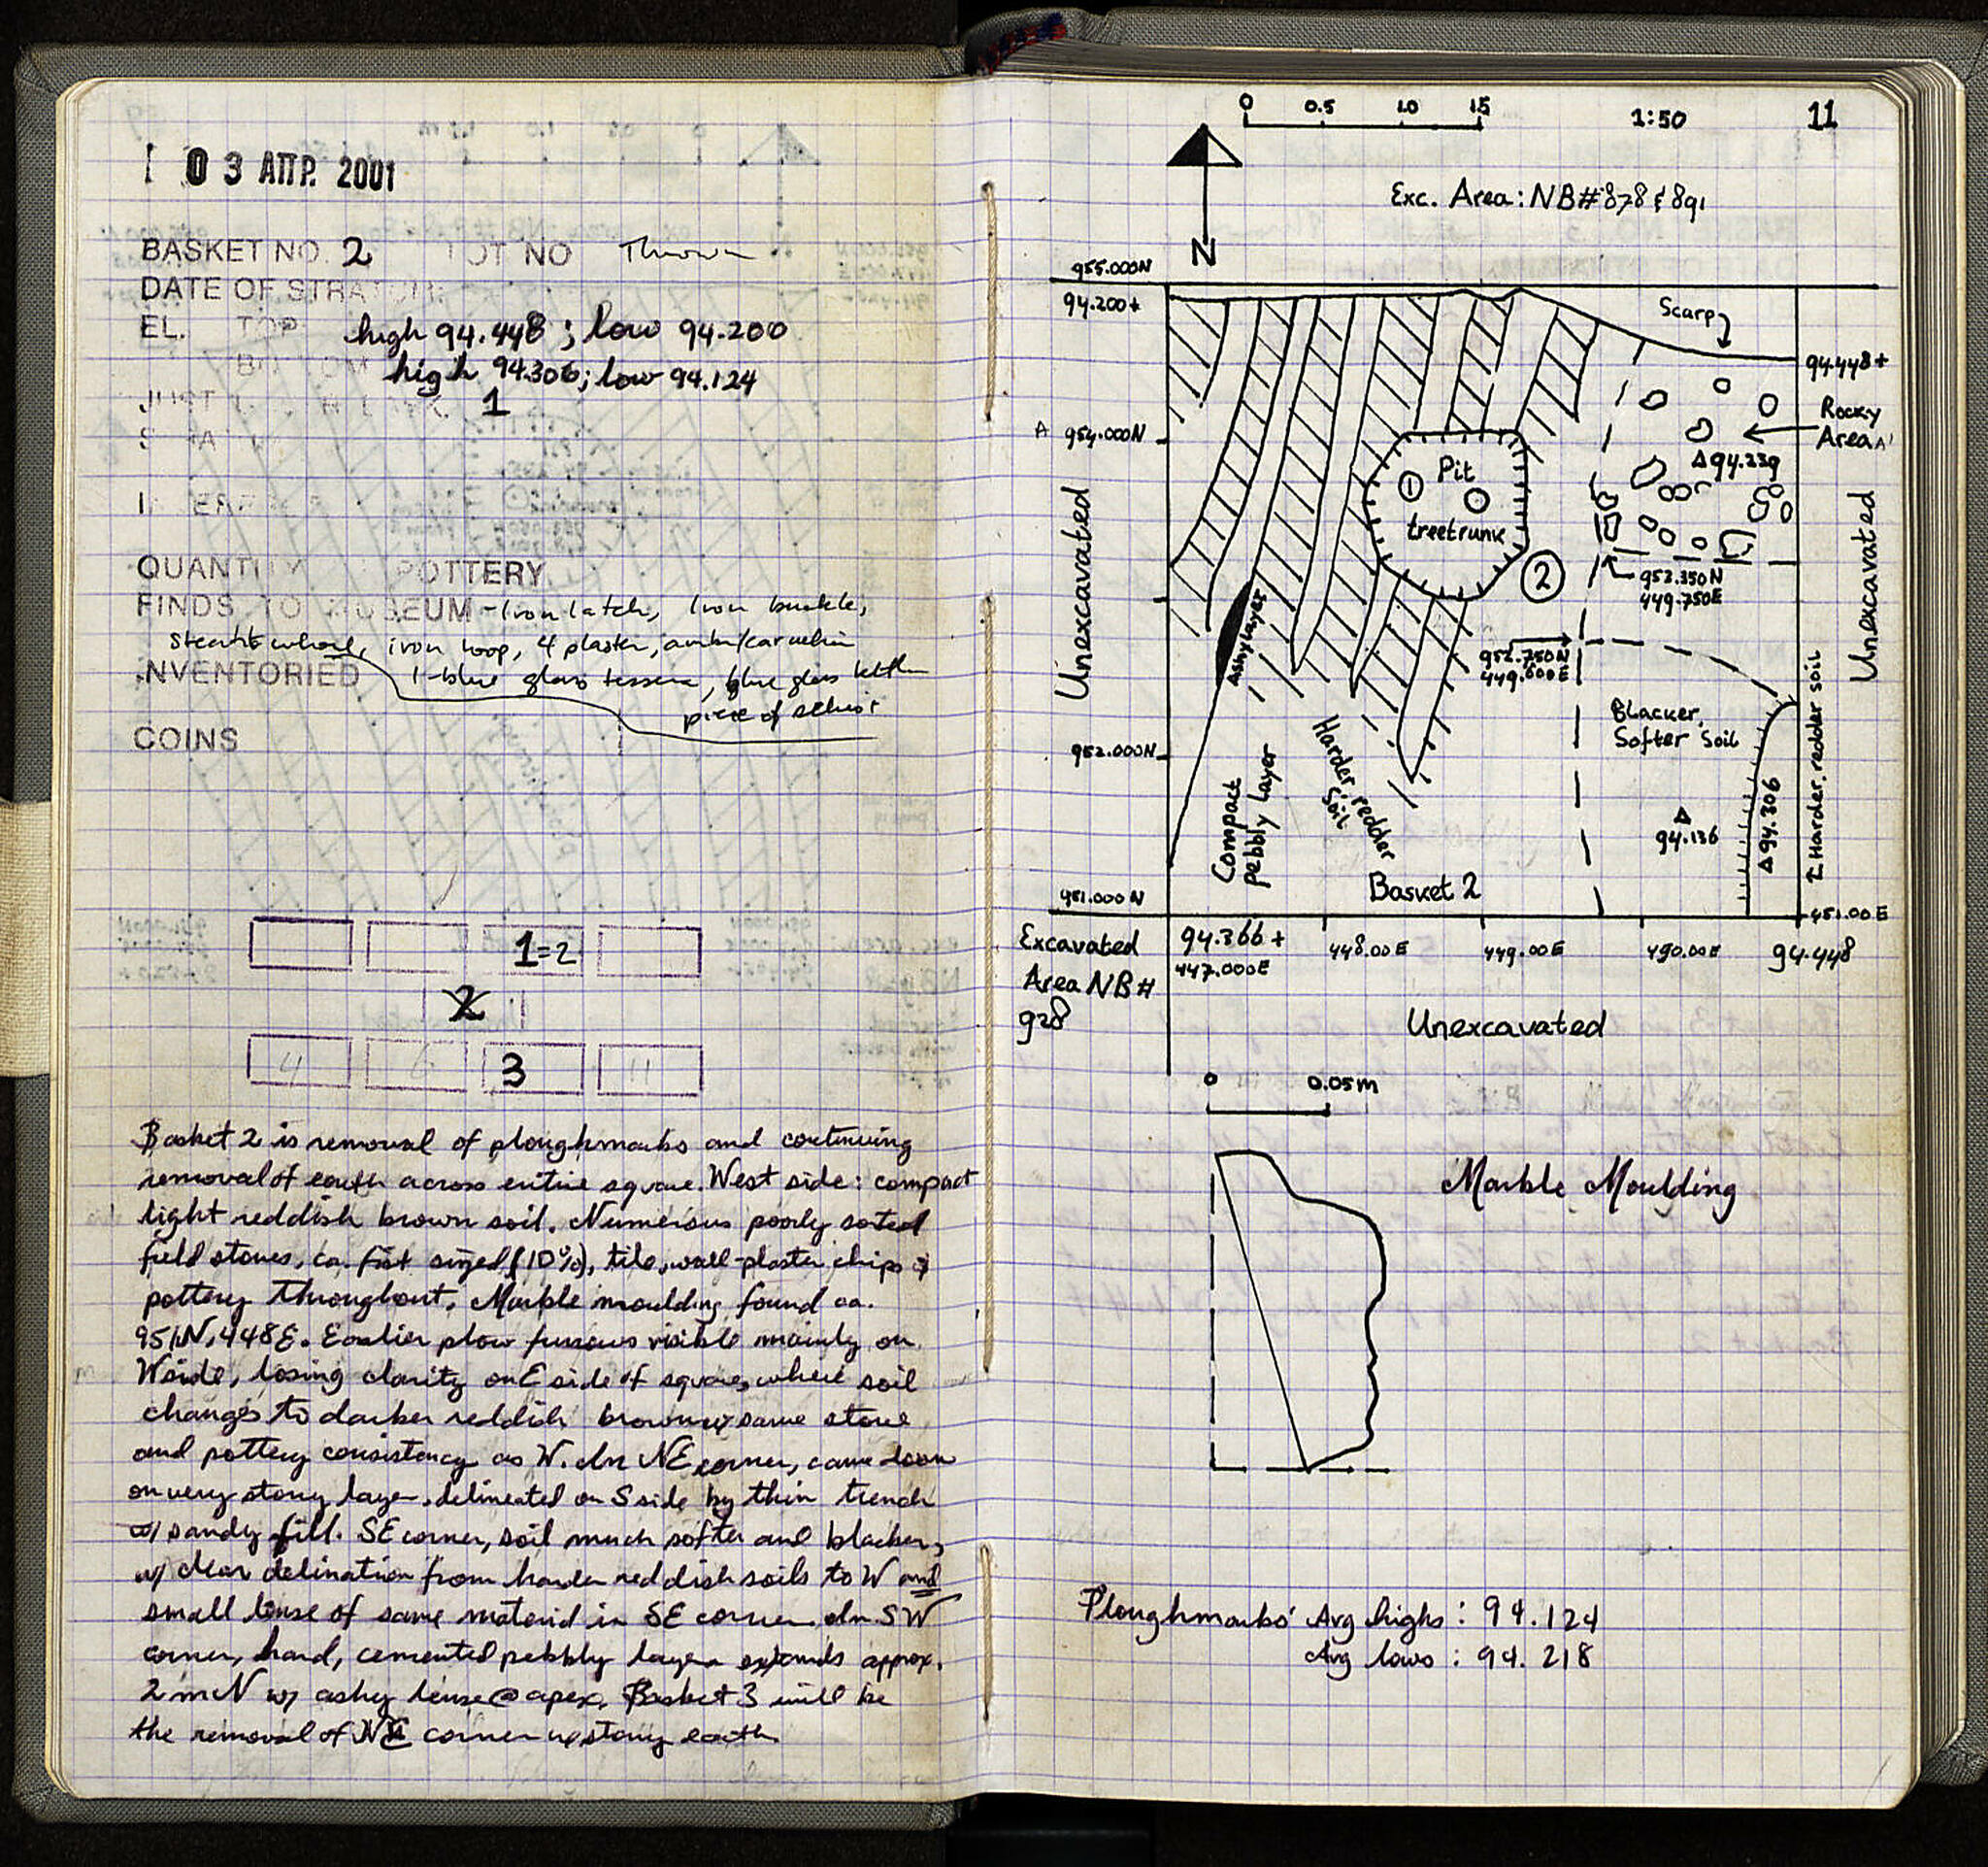 0 3 ΑΠΡ. 2001
BASKET NO. 2 LOT NO Thrown
DATE OF STRATUM
EL. TOP high 94.448; low 94.200
BOTTOM high 94.306; low 94.124
1
QUANTITY POTTERY
FINDS TO MUSEUM - Iron latch, Iron buckle,
iron loop, 4 plaster,
INVENTORIED 1-blue glass tessera, blue glass
piece of schist
COINS
1=2
2
4 6 3 11
Basket 2 is removal of ploughmarks and continuing
removal of earth across entire square. West side: compact
light reddish brown soil. Numerous poorly sorted
field stones, ca. fist sized (10%), tile, wall-plaster chips &
pottery throughout. Marble moulding found ca.
951N, 448E. Earlier plow furrows visible mainly on
W side, losing clarity on E side of square, where soil
changes to darker reddish brown w/ same stone
and pottery consistency as W. In NE corner, came down
on very stony layer, delineated on S side by thin trench
w/ sandy fill. SE corner, soil much softer and blacker,
w/ clear delination from harder reddish soils to W and
small lense of same material in SE corner. In SW
corner, hard, cemented pebbly layer extends approx.
2m N w/ ashy lense @ apex. Basket 3 will be
the removal of NE corner w/ stony earth
0 0.5 1.0 1.5 1:50 11
Exc. Area: NB# 878 & 891
N
955.000N
94.200+
Scarp
94.448+
Rocky
Area A'
A 954.000N
△94.239
Pit
1
treetrunk
2
953.350N
449.750E
Unexcavated
Unexcavated
Ashy layer
952.750N
449.600E
Blacker,
Softer Soil
Harder, redder soil
952.000N
Compact
pebbly layer
Harder, redder
Soil
△
94.136
△94.306
Basket 2
951.000N
451.00E
Excavated
Area NB#
928
94.366+
447.000E
448.00E
449.00E
490.00E
94.448
Unexcavated
0 0.05m
Marble Moulding
Ploughmarks' Avg highs: 94.124
Avg lows: 94.218